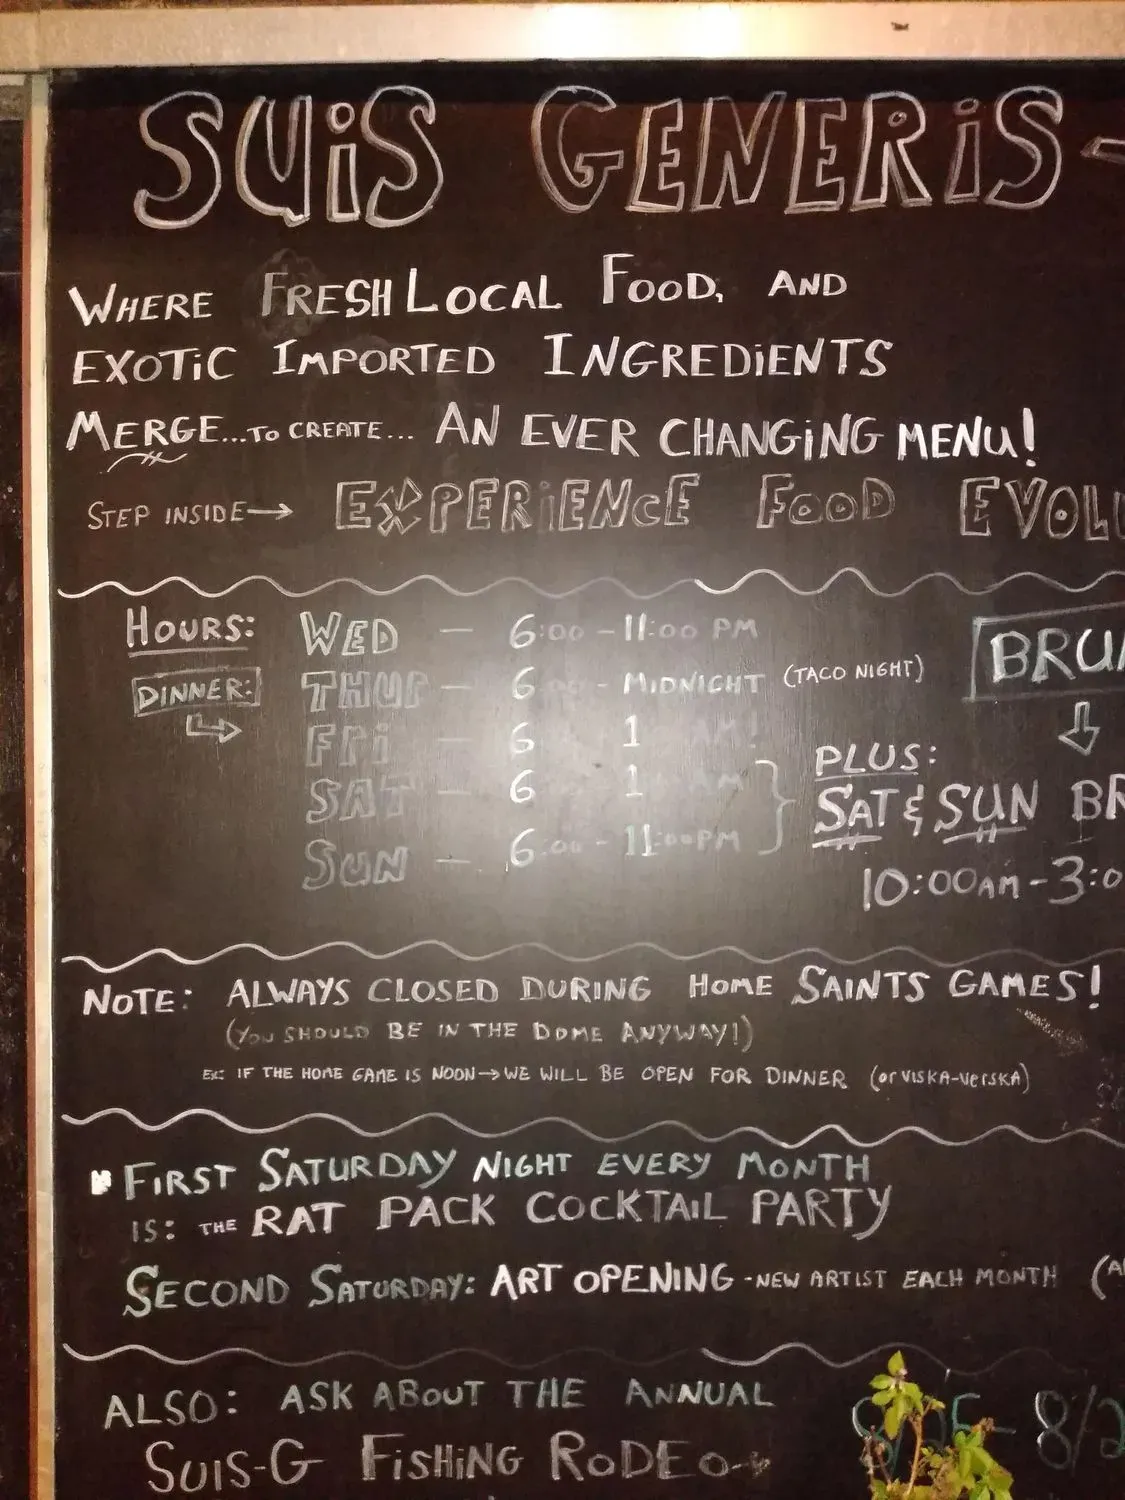 SUiS GENERiS-
WHERE FRESH LOCAL FOOD, AND
EXOTiC IMPORTED INGREDiENTS
MERGE...TO CREATE... AN EVER CHANGiNG MENU!
STEP INSIDE→ EXPERiENCE FOOD EVOLU
HOURS: WED - 6:00-11:00 PM
DINNER: THUR - 6:00 - MIDNIGHT (TACO NIGHT)
FRi - 6 1 AM!
SAT 6 1 AM
SUN - 6:00 - 11:00PM
BRU
PLUS:
SAT & SUN BR
10:00AM-3:0
NOTE: ALWAYS CLOSED DURING HOME SAINTS GAMES!
(YOU SHOULD BE IN THE DOME ANYWAY!)
EX: IF THE HOME GAME IS NOON→WE WILL BE OPEN FOR DINNER (or VISKA-VerSKA)
FIRST SATURDAY NIGHT EVERY MONTH
IS: THE RAT PACK COCKTAIL PARTY
SECOND SATURDAY: ART OPENING -NEW ARTIST EACH MONTH
ALSO: ASK ABOUT THE ANNUAL
SUIS-G FISHING RODEO